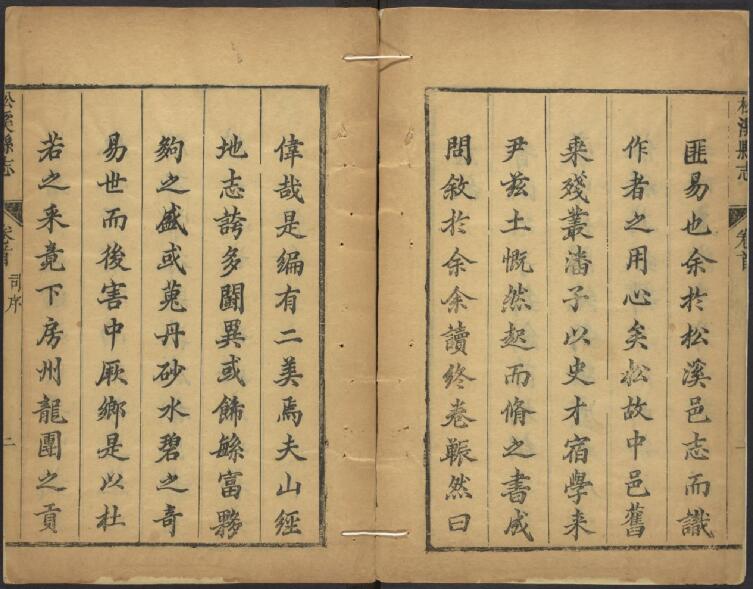 匪易也余於松溪邑志而識
作者之用心矣松故中邑舊
乘殘叢潘子以史才宿學来
尹茲土慨然起而脩之書成
問敘於余余讀終卷冁然曰
松溪縣志
卷首
一
偉哉是編有二美焉夫山經
地志誇多鬪異或飾緐富夥
夠之盛或蒐丹砂水碧之奇
易世而後害中厥鄉是以杜
若之采竟下房州龍團之貢
松溪縣志
卷首
司序
二